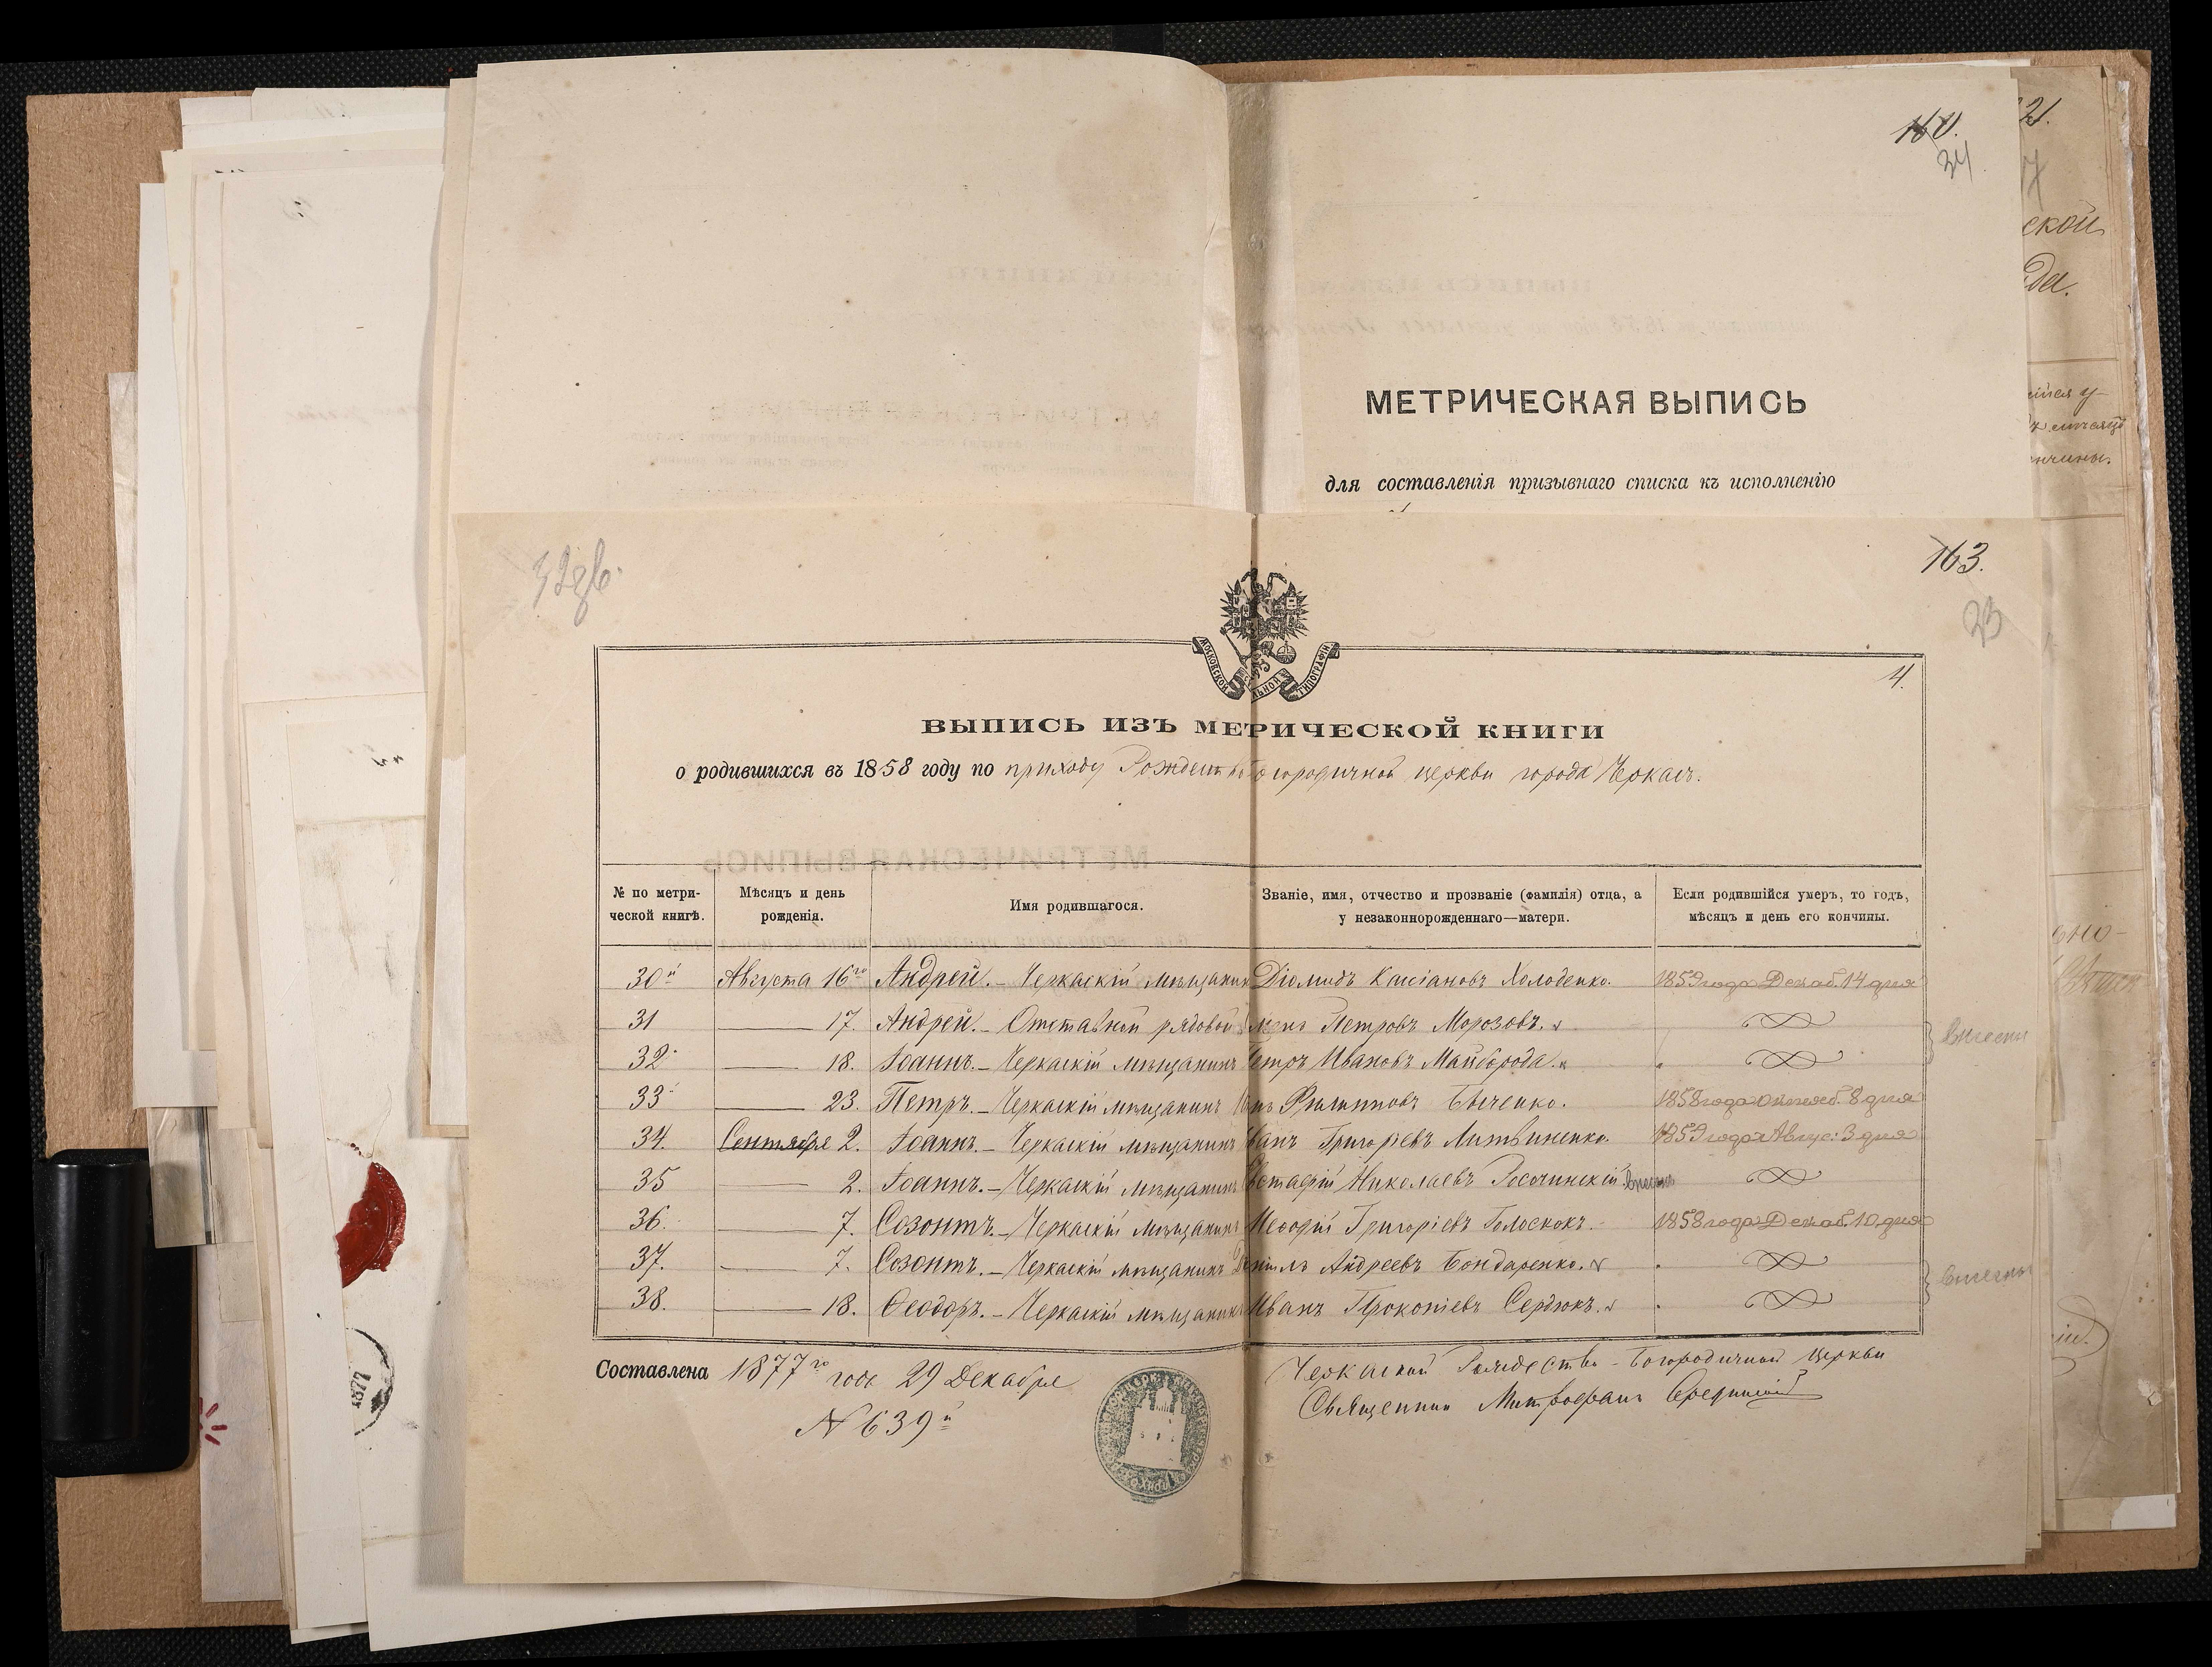 21.
160.
34
ской
да.
МЕТРИЧЕСКАЯ ВЫПИСЬ
для составленія призывнаго списка къ исполненію
32 зв.
163.
23
МОСКОВСКОЙ ТИПОГРАФІИ
4.
ВЫПИСЬ ИЗЪ МЕТРИЧЕСКОЙ КНИГИ
о родившихся въ 1858 году по приходу Рождество Богородичной церкви города Черкасъ.
№ по метрической книгѣ. Мѣсяцъ и день рожденія. Имя родившагося. Званіе, имя, отчество и прозваніе (фамилія) отца, а у незаконнорожденнаго—матери. Если родившійся умеръ, то годъ, мѣсяцъ и день его кончины.
30й Августа 16го Андрей.- Черкаскій мѣщанинъ Діомидъ Касіановъ Холоденко. 1859 года Декаб. 14 дня
31 — 17. Андрей.- Отставной рядовой Петровъ Морозовъ.
32 — 18. Іоаннъ.- Черкаскій мѣщанинъ Петръ Ивановъ Майборода.
внесены
33 — 23. Петръ.- Черкаскій мѣщанинъ Филиповъ Быченко. 1858 года октяб. 8 дня
34. Сентября 2. Іоаннъ.- Черкаскій мѣщанинъ Иванъ Григорієвъ Литвиненко. 1859 года Авгус: 3 дня
35 — 2. Іоаннъ.- Черкаскій мѣщанинъ Евстафій Николаевъ Росочинскій. внесенъ
36. — 7. Созонтъ.- Черкаскій мѣщанинъ Меѳодій Григоріевъ Голоскокъ. 1858 года Декаб. 10 дня
37. — 7. Созонтъ.- Черкаскій мѣщанинъ Даніилъ Андреевъ Бондаренко.
38. — 18. Ѳеодоръ.- Черкаскій мѣщанинъ Иванъ Прокопіевъ Сердюкъ.
внесены
Составлена 1877го года 29 Декабря
№ 639й
Черкаской Рождество-Богородичной церкви
Священникъ Митрофанъ
1877